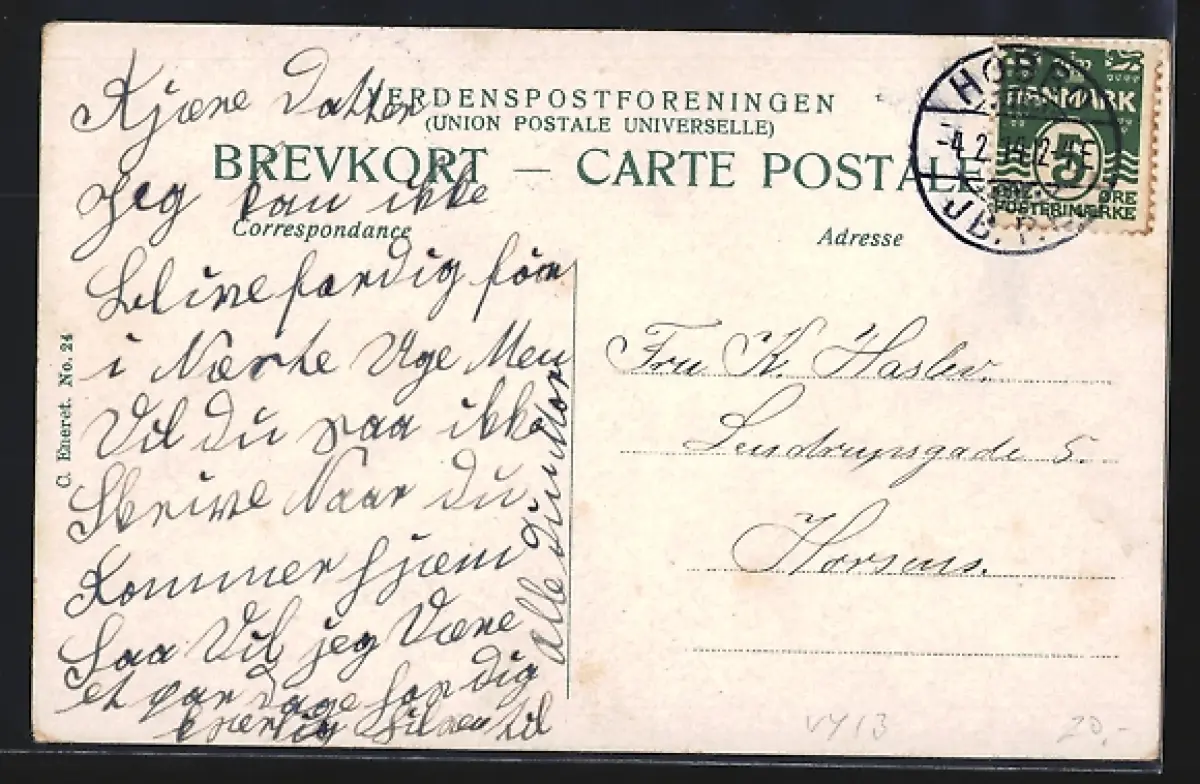 Kjære Datter
Jeg kan ikke
blive færdig før
i Næste Uge Men
Vil du saa ikke
Skrive Naar du
Kommer hjem
Saa Vil jeg Være
et par Dage hos dig
kærlig Hilsen til
alle din Mor
VERDENSPOSTFORENINGEN
(UNION POSTALE UNIVERSELLE)
BREVKORT — CARTE POSTALE
Correspondance
Adresse
C. Eneret. No. 24
HOBRO
-4.2.14. 2-4E
JB.P.
DANMARK
5
ØRE
POSTFRIMÆRKE
Fru K. Haslev.
Lendrupsgade 5.
Horsens.
VY13
20,-